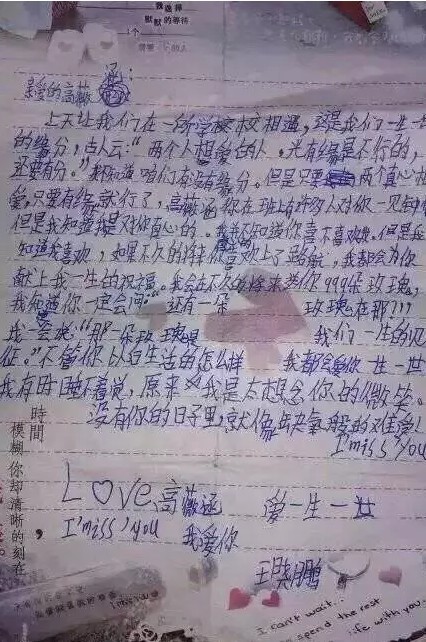 我选择
默默的等待
亲爱的高薇涵:
上天让我们在一所学校相遇,这是我们一生一世
的缘分,古人云:“两个人相爱的人。光有缘是不行的,
还要有分。”我知道咱们有没有缘分。但是只要两个真心相
爱,只要有缘就行了,高薇涵你在班上有许多人对你一见钟情
但是我知道我是对你真心的。我不知道你喜不喜欢我。但是我
知道我喜欢,如果不久的将来你喜欢上了
,我都会为你
献上我一生的祝福。我会在不久的将来送你999朵玫瑰,
我知道你一定会问:“还有一朵 玫瑰在那???
我会说:“那一朵玫瑰是 我们一生的见
证。”不管你以后生活的怎么样 我都会爱你一生一世
我有时睡不着觉,原来是我是太想念你的微笑。
没有你的日子里,就像缺氧般的难受!
I'miss you
时间
模糊你却清晰的刻在
Love高薇涵 爱一生一世
I'miss you 我爱你
王晓鹏
I can't wait...
spend the rest
life with you.